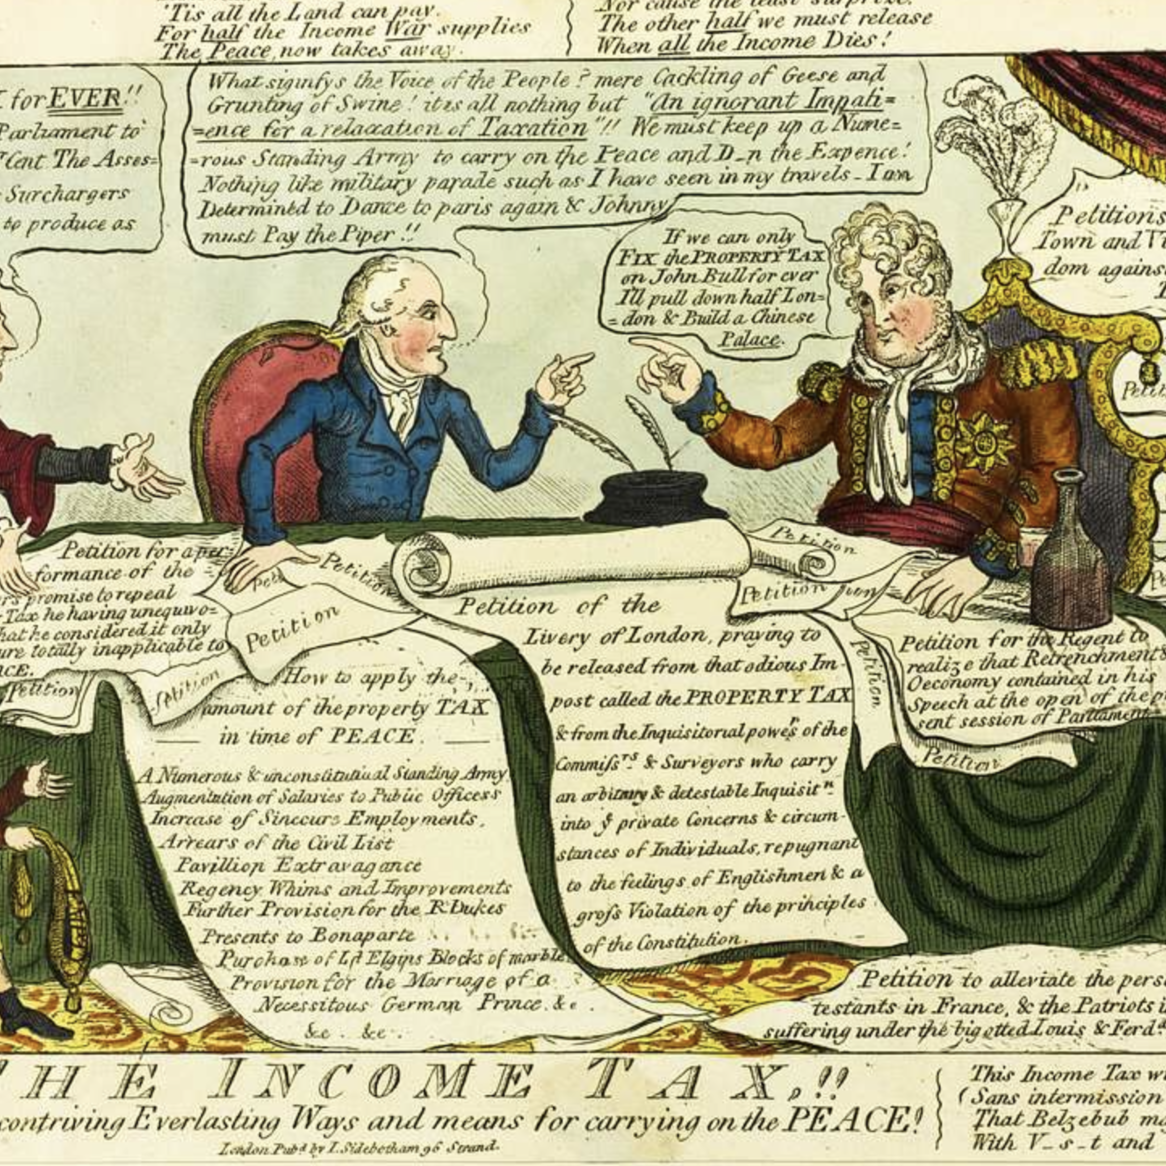 'Tis all the Land can pay.
For half the Income War supplies
The Peace, now takes away.
Nor cause the least surprize.
The other half we must release
When all the Income Dies!
for EVER!!
Parliament to
Cent The Asses=
Surchargers
to produce as
What signifys the Voice of the People? mere Cackling of Geese and
Grunting of Swine! it is all nothing but "An ignorant Impati=
=ence for a relaxation of Taxation"!! We must keep up a Nume=
=rous Standing Army to carry on the Peace and D_n the Expence!
Nothing like military parade such as I have seen in my travels_I am
Determined to Dance to paris again & Johnny
must Pay the Piper!!
If we can only
FIX the PROPERTY TAX
on John Bull for ever
I'll pull down half Lon=
=don & Build a Chinese
Palace.
Petitions
Town and Vi
dom against
T
Petit
Pe
Petition for a per=
formance of the
rs promise to repeal
Tax he having unequivo=
hat he considered it only
ure totally inapplicable to
ACE.
Petition
Petition
Peti
Petition
Petition
How to apply the
amount of the property TAX
in time of PEACE.
A Numerous & unconstitutiual Standing Army
Augmentation of Salaries to Public Officess
Increase of Sinecure Employments,
Arrears of the Civil List
Pavillion Extravagance
Regency Whims and Improvements
Further Provision for the R. Dukes
Presents to Bonaparte
Purchase of Ld Elgins Blocks of marble
Provision for the Marriage of a
Necessitous German Prince. &c
&c. &c.
Petition of the
Livery of London, praying to
be released from that odious Im-
post called the PROPERTY TAX
& from the Inquisitorial powers of the
Commissrs & Surveyors who carry
an arbitrary & detestable Inquisitn
into ye private Concerns & circum-
stances of Individuals, repugnant
to the feelings of Englishmen & a
gross Violation of the principles
of the Constitution.
Petition
Petition
Petition
Petition for the Regent to
realize that Retrenchment &
Oeconomy contained in his
Speech at the open of the p
sent session of Parliament
Petition
Petition to alleviate the pers
testants in France, & the Patriots i
suffering under the bigotted Louis & Ferdd
THE INCOME TAX,!!
contriving Everlasting Ways and means for carrying on the PEACE!
London Pubd by I. Sidebetham 96 Strand.
This Income Tax wi
(Sans intermission
That Belzebub ma
With V_s_t and